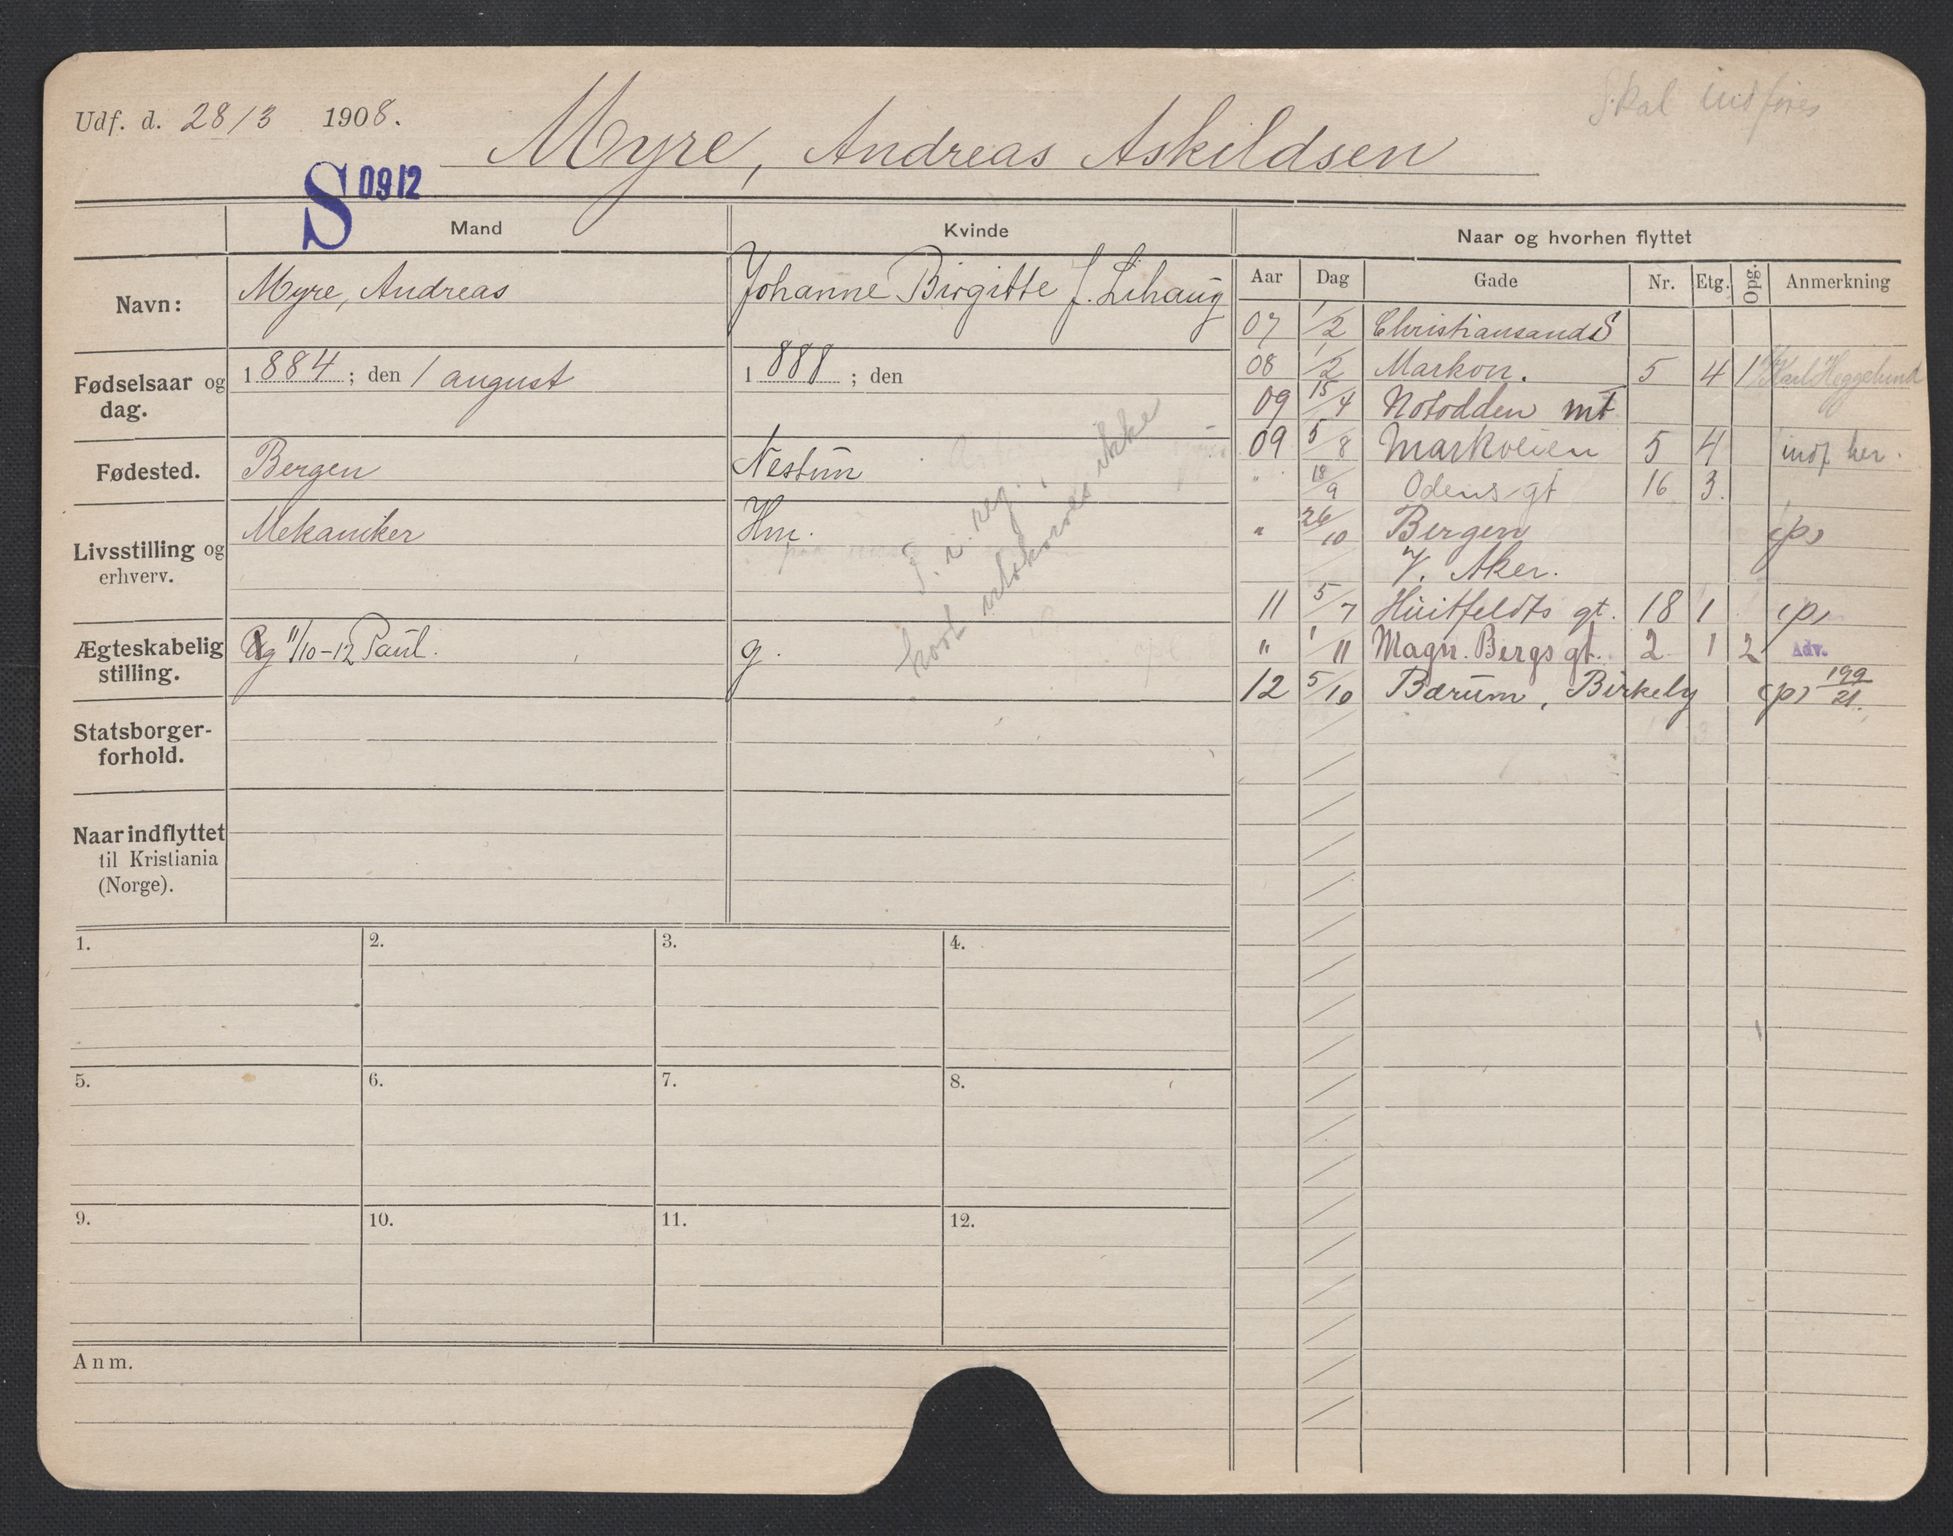 Udf. d. 28/3 1908.
Skal indføres
Myre, Andreas Askildsen
S 0912
Mand
Kvinde
Naar og hvorhen flyttet
Aar Dag Gade Nr. Etg. Opg. Anmerkning
Navn: Myre, Andreas Johanne Birgitte f. Lihaug
Fødselsaar og dag. 1884; den 1 august 1888; den
Fødested. Bergen Nestun
Livsstilling og erhverv. Mekaniker Hm.
Ægteskabelig stilling. g 11/10-12 Paul. g.
Statsborger-
forhold.
Naar indflyttet
til Kristiania
(Norge).
07 1/2 Christiansand S
08 1/2 Markvn. 5 4 1 Karl Heggelund
09 15/4 Notodden mt
09 5/8 Markveien 5 4 indf her.
" 18/9 Odens gt 16 3.
" 26/10 Bergen (p)
V. Aker.
11 5/7 Huitfeldts gt. 18 1 (p)
" 1/11 Magn. Bergs gt. 2 1 2 Adv.
12 5/10 Bærum, Birkely (p) 199/21.
I. v. reg.
kort utskrives ikke
1. 2. 3. 4.
5. 6. 7. 8.
9. 10. 11. 12.
Anm.